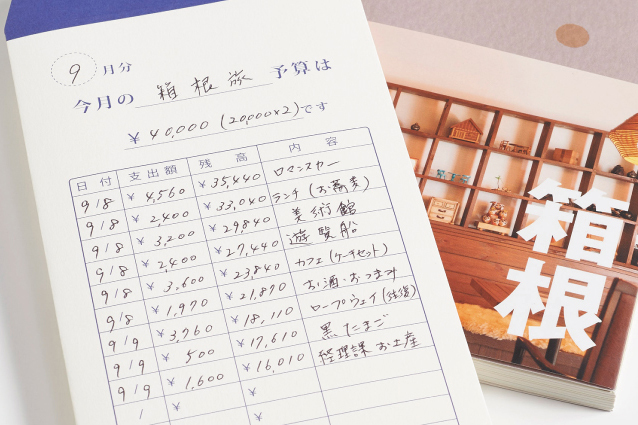 9 月分
今月の 箱根旅 予算は
¥40,000 (20,000×2) です
日付 支出額 残高 内容
9/8 ¥4,560 ¥35,440 ロマンスカー
9/8 ¥2,400 ¥33,040 ランチ(お蕎麦)
9/8 ¥3,200 ¥29,840 美術館
9/8 ¥2,400 ¥27,440 遊覧船
9/8 ¥3,600 ¥23,840 カフェ(ケーキセット)
9/8 ¥1,970 ¥21,870 お酒・おつまみ
9/9 ¥3,760 ¥18,110 ロープウェイ(往復)
9/9 ¥500 ¥17,610 黒たまご
9/9 ¥1,600 ¥16,010 経理課 お土産
/ ¥ ¥
¥
箱根